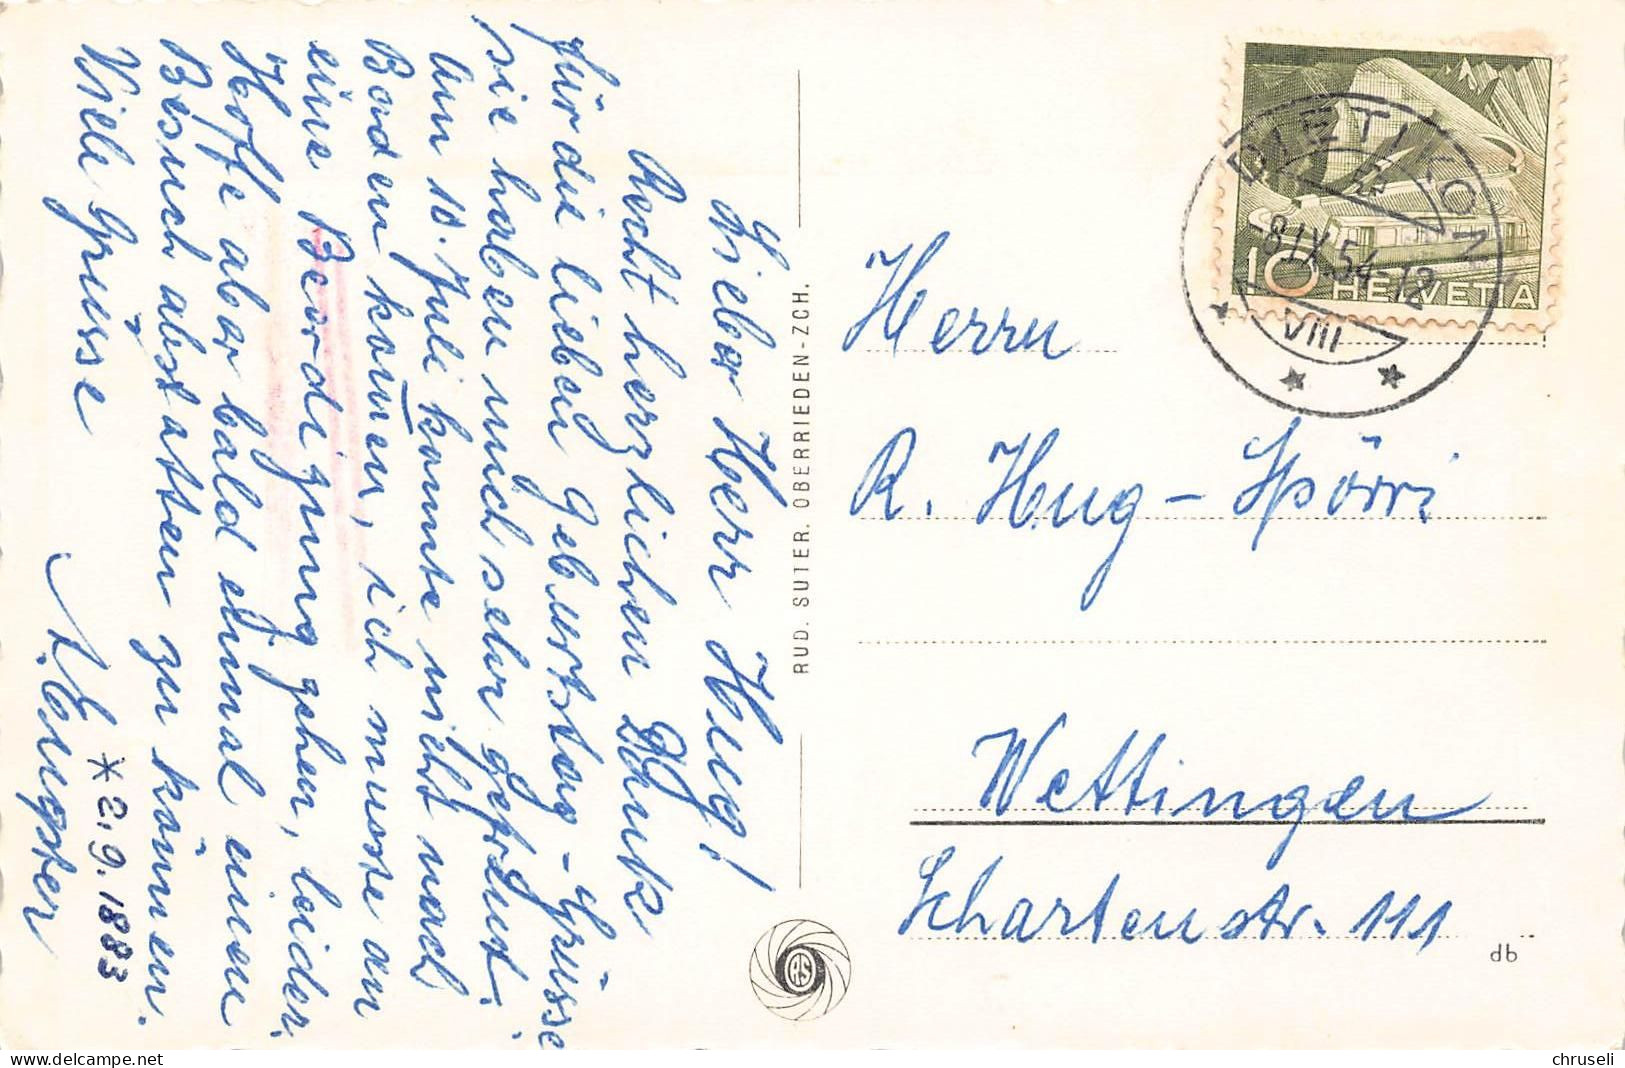 Lieber Herr Hug!
Recht herzlichen Dank
für die lieben Geburtstag-Grüsse
sie haben mich sehr gefreut.
Am 10. Juli konnte nicht nach
Baden komen, ich musste an
eine Beerdigung gehen, leider.
Hoffe aber bald einmal einen
Besuch abstatten zu könen.
Viele Grüsse
* 2.9.1883
RUD. SUTER. OBERRIEDEN-ZCH.
RS
DIETIKON
-8.IX.54-12
VIII
10 HELVETIA
Herrn
R. Hug-Spörri
Wettingen
Schartenstr. 111
db
chruseli